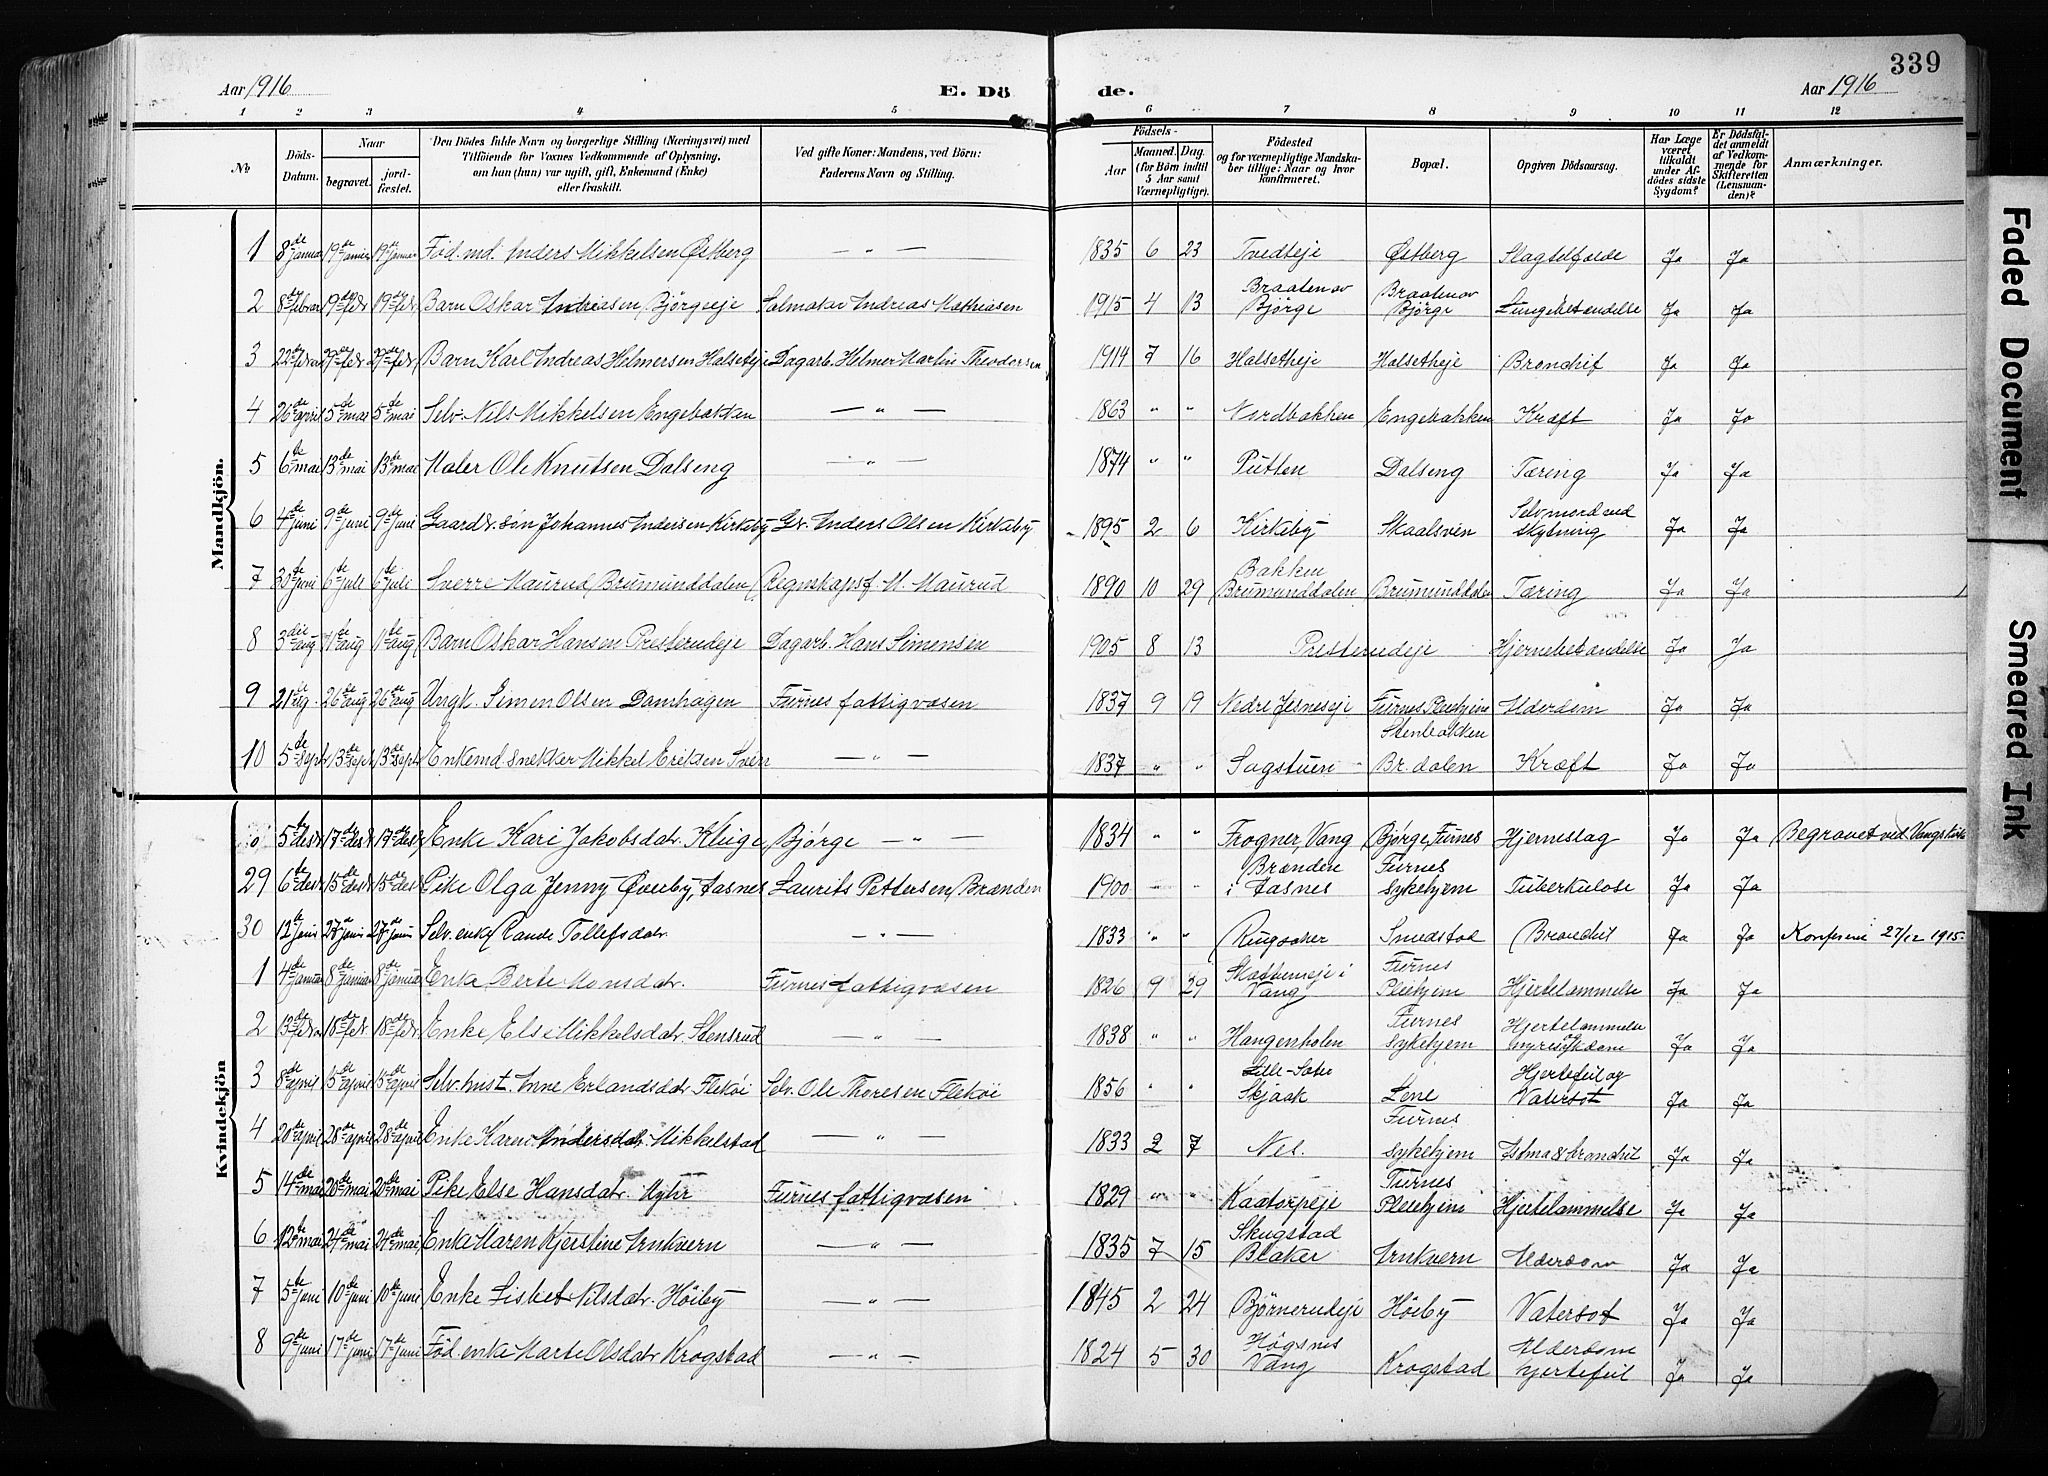 339
Aar 1916
E. Dö
de.
Aar 1916
1 2 3 4 5 6 7 8 9 10 11 12
No
Döds-Datum.
Naar
begravet.
jord-fæstet.
Den Dödes fulde Navn og borgerlige Stilling (Næringsvei) med
Tilföiende for Voxnes Vedkommende af Oplysning,
om han (hun) var ugift, gift, Enkemand (Enke)
eller fraskilt.
Ved gifte Koner: Mandens, ved Börn:
Faderens Navn og Stilling.
Födsels-
Aar
Maaned. Dag.
(for Börn indtil
5 Aar samt
Værnepligtige).
Födested
og for værnepligtige Mandska-
ber tillige: Naar og hvor
konfirmeret.
Bopæl.
Opgiven Dödsaarsag.
Har Læge
været
tilkaldt
under Af-
dödes sidste
Sygdom?
Er Dödsfal-
det anmeldt
af Vedkom-
mende for
Skifteretten
(Lensman-
den)?
Anmærkninger.
Mandkjön.
1 8de januar 19de januar 19de januar Föd. md. Anders Mikkelsen Østberg — " — 1835 6 23 Tvedteje Østberg Slagtilfælde Ja Ja
2 8de februar 19de febr 19de febr Barn Oskar Andreasen Bjørgeeje Salmaker Andreas Mathiasen 1915 4 13 Braaten av Bjørge Braaten av Bjørge Lungebetændelse Ja Ja
3 22de februar 29de febr 29de febr Barn Karl Andreas Helmersen Halsetheje Dagarb. Helmer Martin Theodorsen 1914 7 16 Halsetheje Halsetheje Bronchit Ja Ja
4 26de april 5de mai 5de mai Selv. Nils Mikkelsen Engebakken — " — 1863 " " Nordbakken Engebakken Kræft Ja Ja
5 6te mai 13de mai 13de mai Maler Ole Knutsen Dalseng — " — 1874 " " Putten Dalseng Tæring Ja Ja
6 4de juni 9de juni 9de juni Gaardb. søn Johannes Andersen Kirkeby Gb. Anders Olsen Kirkeby 1895 2 6 Kirkeby Skaalsven Selvmord ved skytning Ja Ja
7 30te juni 6te juli 6te juli Sverre Maurud Brumunddalen Regnskapsf. M. Maurud 1890 10 29 Bakken Brumunddalen Brumunddalen Tæring Ja Ja
8 3die aug 11te aug 11te aug Barn Oskar Hansen Presterudeje Dagarb. Hans Simensen 1905 8 13 Presterudeje Hjernebetændelse Ja Ja
9 21de aug. 26de aug 26de aug Ungk. Simen Olsen Damhagen Furnes fattigvæsen 1837 9 19 Nedre Jesneseje Furnes Pleiehjem Alderdom Ja Ja
10 5te sept 13de sept 13de sept Enkemd. snekker Mikkel Eriksen Sveen — " — 1837 " " Sagstuen Stenbakken Br. dalen Kræft Ja Ja
Kvindekjön
5te desbr 17de desbr 17de desbr Enke Kari Jakobsdatr. Kluge Bjørge — " — 1834 " " Frogner, Vang Bjørge, Furnes Hjerneslag Ja Ja Begravet ved Vangs kirke
29 6te desbr 15de desbr 15de desbr Pike Olga Jenny Øveby, Aasnes Laurits Pettersen, Brænden 1900 " Brænden i Aasnes Furnes sykehjem Tuberkulose Ja Ja
30 12te 27de 27de Selv. enke Rande Tollefsdatr. — " — 1833 " " Ringsaker Smedstad Bronchit Ja Ja Konferer 27/12 1915.
1 4de januar 8de januar 8de januar Enke Berte Monsdatr. Furnes fattigvæsen 1826 9 29 Skattumeje i Vang Furnes Pleiehjem Hjertelammelse Ja Ja
2 13de febr 18de febr 18de febr Enke Else Mikkelsdatr. Stensrud — " — 1838 " " Haugenholen Furnes sykehjem Hjertelammelse nyresykdom Ja Ja
3 8de april 15de april 15de april Selv. hust. Anne Erlandsdatr. Flekøi Selv. Ole Thoresen Flekøi 1856 " " Lille-Sæter Skjaak Lene Hjertefeil og Vatersot Ja Ja
4 20de april 28de april 28de april Enke Karen Andersdatr. Mikkelstad — " — 1833 2 7 Nes. Furnes sykehjem Astma & bronchit Ja Ja
5 14de mai 20de mai 20de mai Pike Else Hansdatr. Furnes fattigvæsen 1829 " " Kaatorpeje Furnes Pleiehjem Hjertelammelse Ja Ja
6 12te mai 24de mai 24de mai Enke Maren Kjerstine Arnkvern — " — 1835 7 15 Skugstad Blaker Arnkvern Alderdom Ja Ja
7 5te juni 10de juni 10de juni Enke Lisbet Nilsdatr. Höiby — " — 1845 2 24 Bjørnerudeje Höiby Vatersot Ja Ja
8 9de juni 17de juni 17de juni Föd. enke Marte Olsdatr Krogstad — " — 1824 5 30 Høgsnes Vang Krogstad Alderdom hjertefeil Ja Ja
Faded Document
Smeared Ink